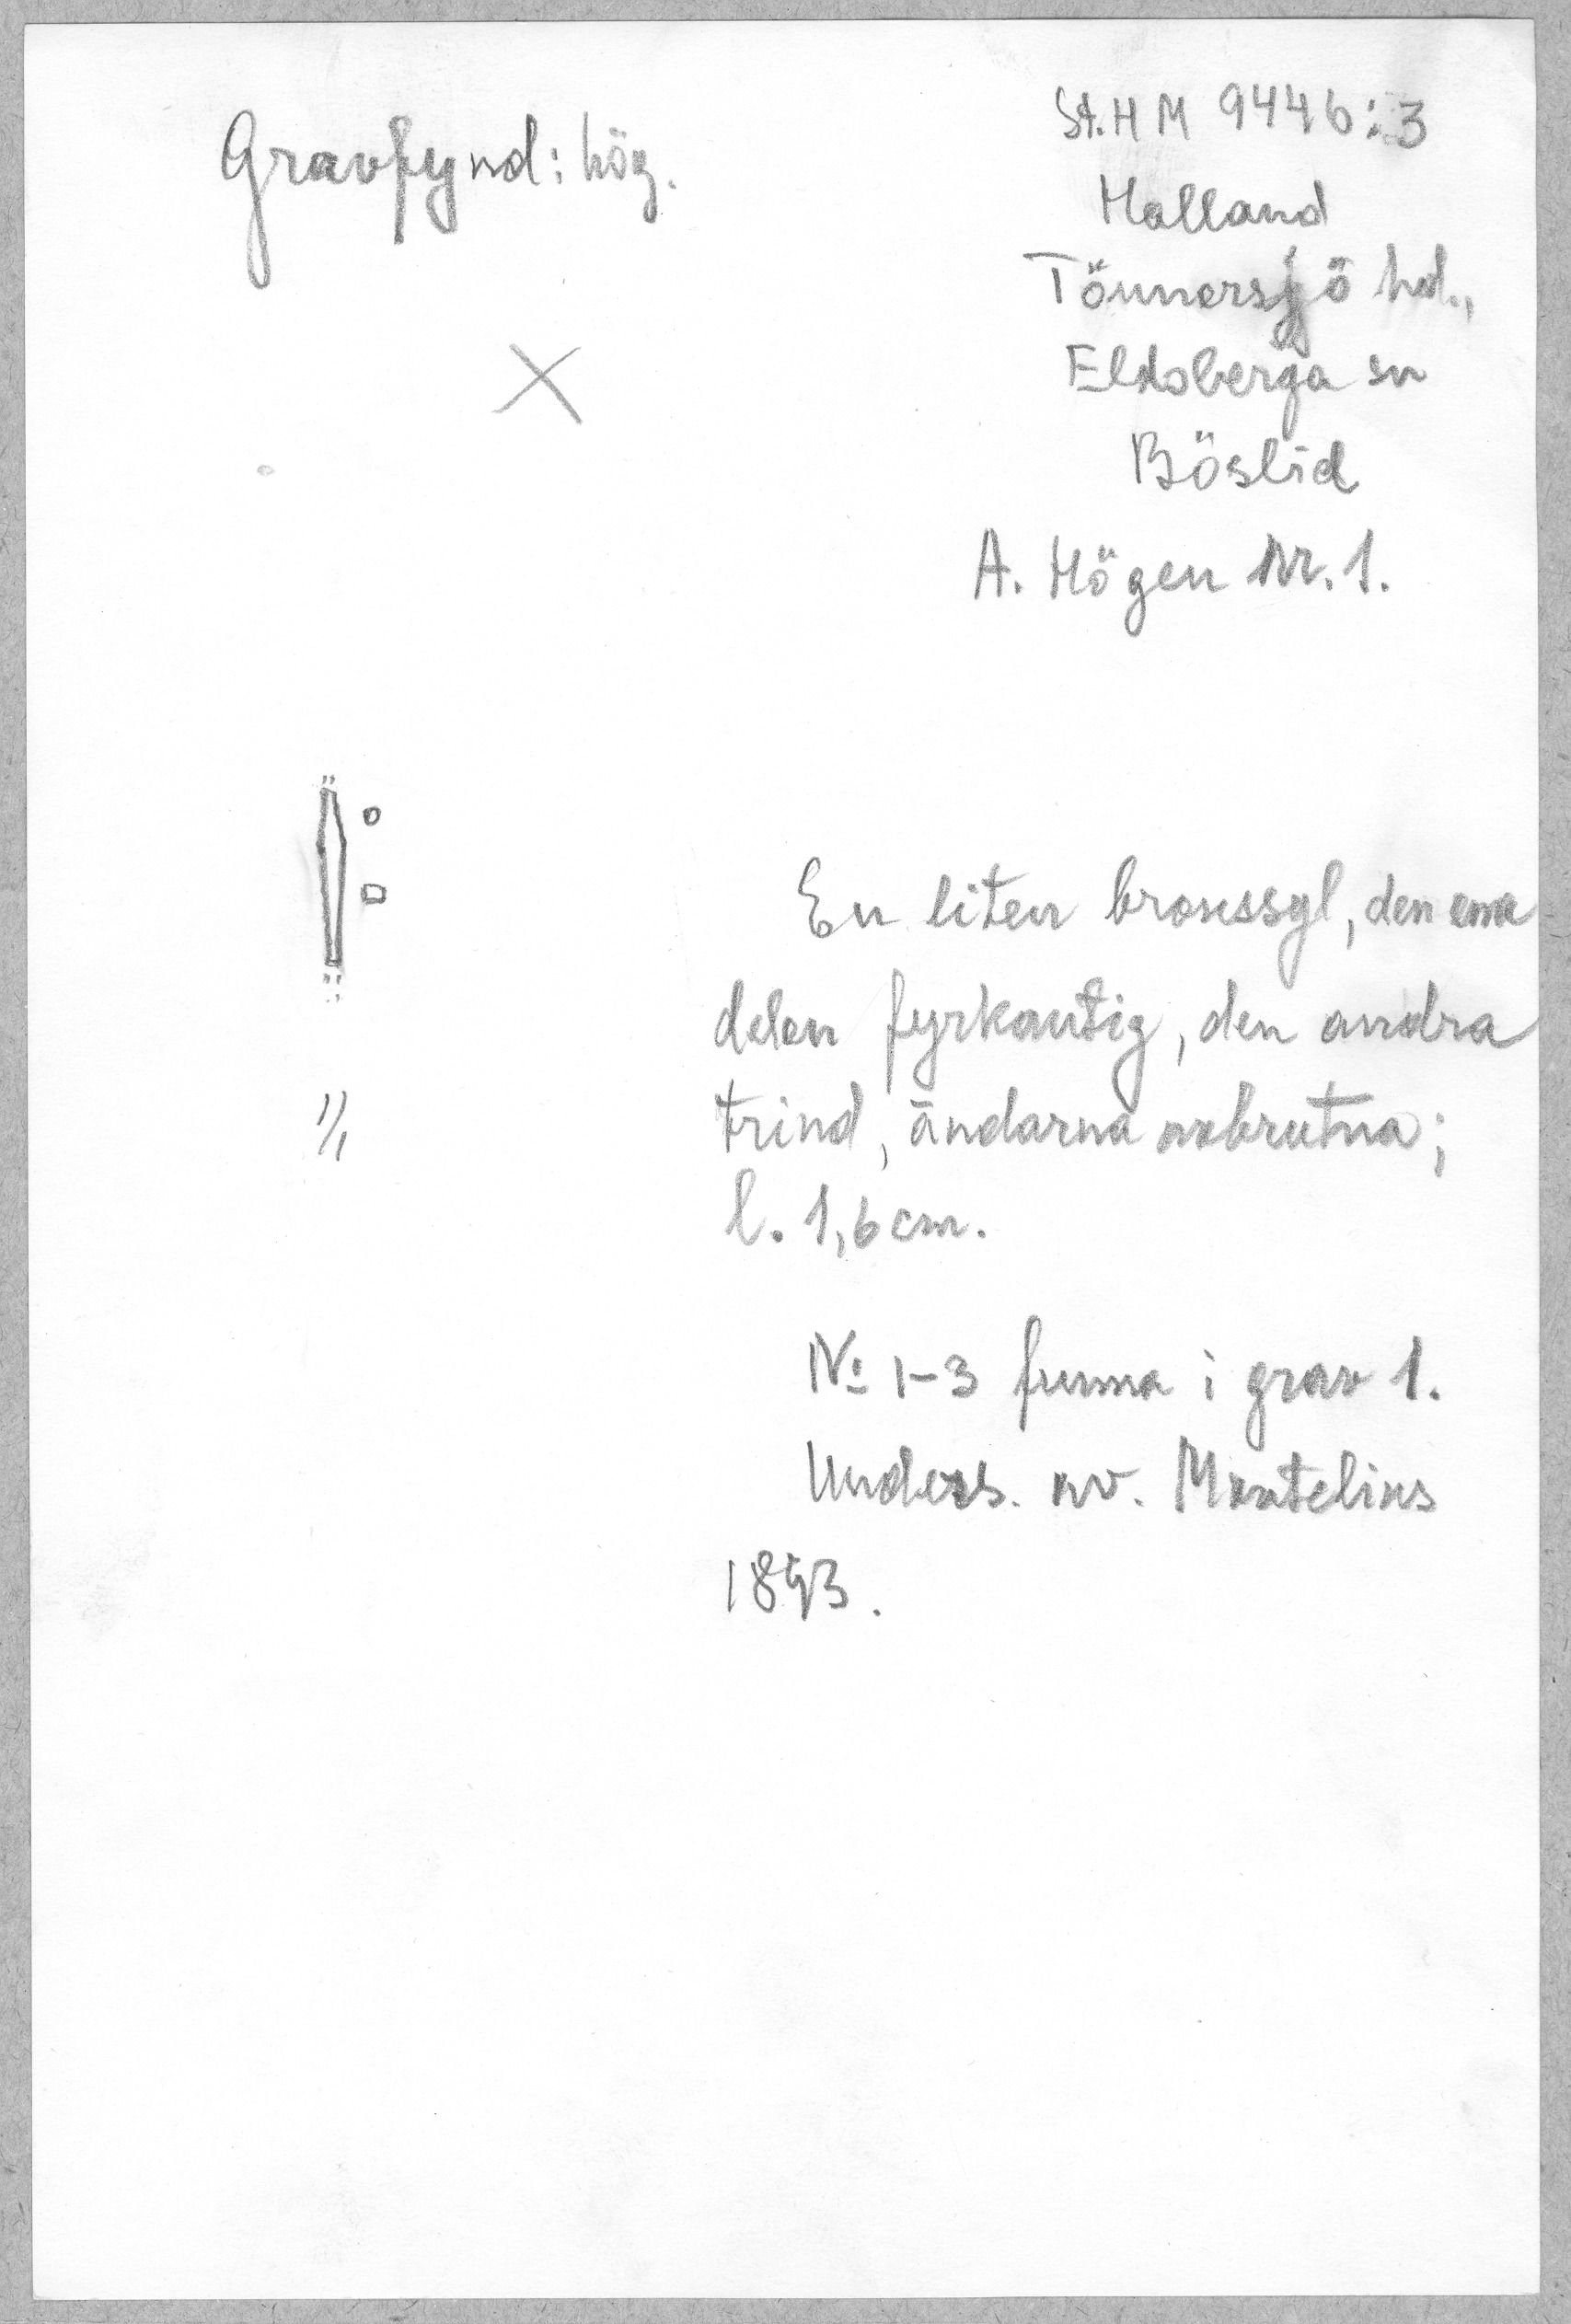 Gravfynd: hög.
St. H M 9446:3
Halland
Tönnersjö hd.,
Eldsberga sn
Böslid
A. Högen Nr. 1.
X
En liten bronssyl, den ena
delen fyrkantig, den andra
trind, ändarna avbrutna;
l. 1,6 cm.
1/1
No 1-3 funna i grav 1.
Unders. av. Montelius
1893.